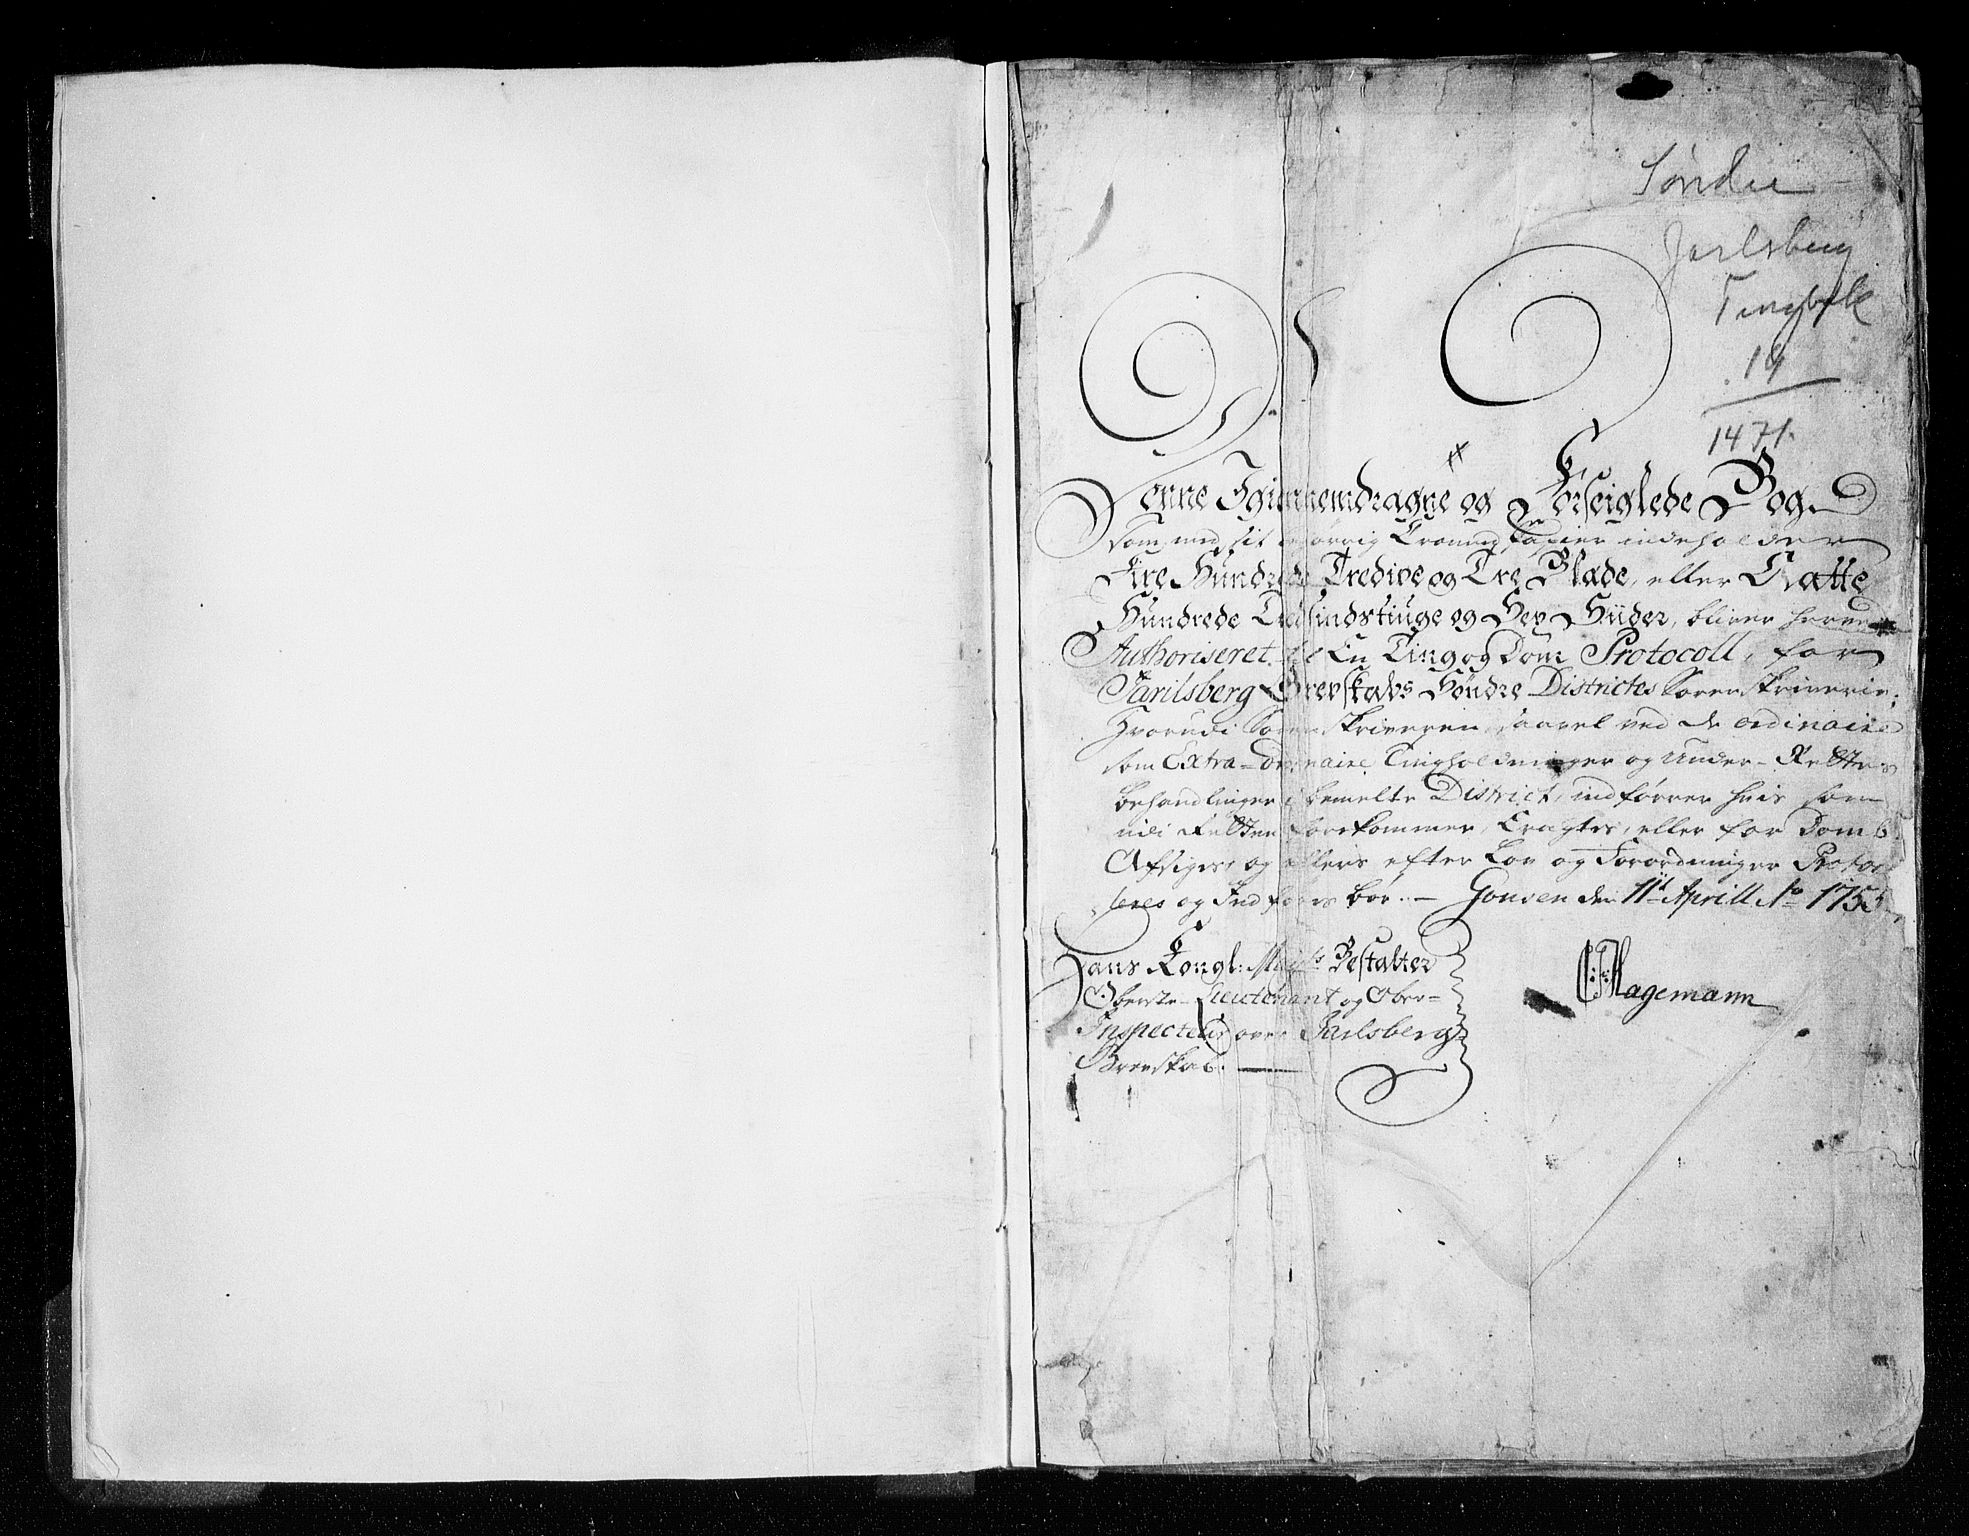 Søndre
Jarlsberg
Tingbok
19
1471.
Denne Igiennemdragne og Forseiglede Bog
som med sit behørrig Croened Papier indeholder
Fire Hundrede Tredive og Tre Blade, eller Otte
Hundrede Tredsindstiuge og Sex Siider, bliver herved
Authoriseret til En Ting og Dom Protocoll, for
Jarlsberg Grevskabs Søndre Districtes Sorenskriverie;
Hvorudi Sorenskriveren, saavel ved de ordinaire
som Extra-Ordinaire Tingholdninger og Under-Rettes
behandlinger i bemelte District, indførrer hvis som
udi Retten forekommer, Eragtes, eller for Domb
Afsiges, og ellers efter Lov og Forordninger Protocol
leres og Indføres bør. - Gousen den 11te Aprill Ao 1755
Hans Kongl: Mayts Bestalter
Oberste-Lieutenant og Ober-
Inspecteur over Jarlsbergs
Grevskab.
Hagemann